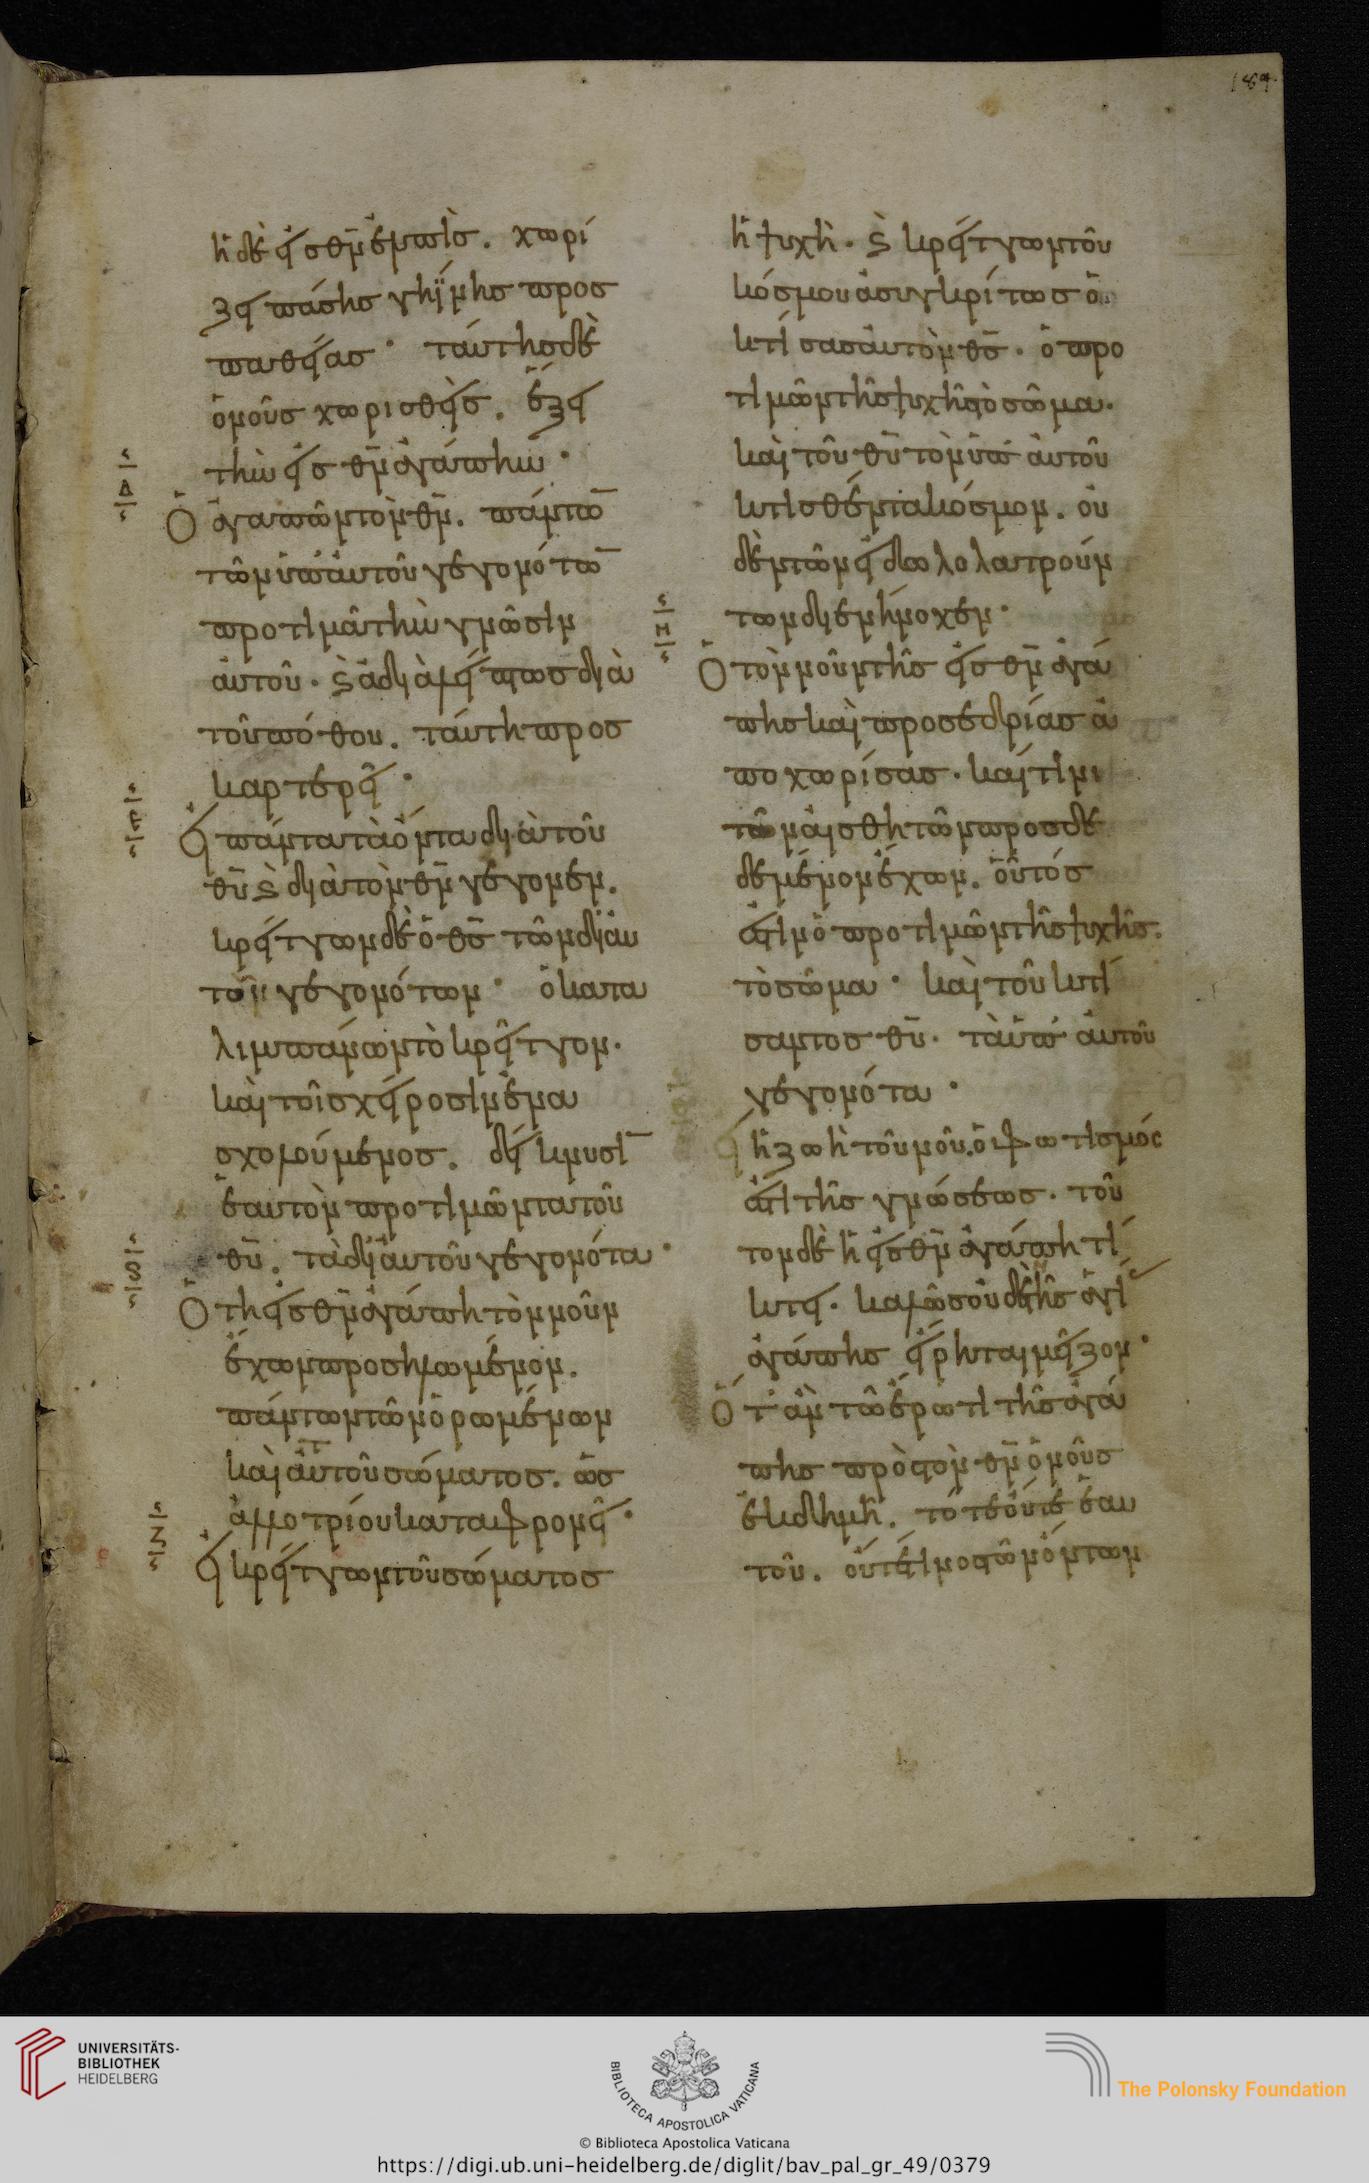 189
ἡ δὲ εἰς θν̄ ἐλπὶς. χωρί
ζει πάσης γηΐνης προσ
παθείας· ταύτης δὲ
ὁ νοῦς χωρισθεὶς. ἕξει
τὴν εἰς θν̄ ἀγάπην·
Δ
Ὁ ἀγαπῶν τὸν θν̄. πάντω̄
τῶν ὑπ' αὐτοῦ γεγονότω̄
προτιμᾶ τὴν γνῶσιν
αὐτοῦ. ϗ ἀδιαλείπτως διὰ
τοῦ πόθου. ταύτη προσ
καρτερεῖ·
Ε
Εἰ πάντα τὰ ὄντα διὰ τοῦ
θῡ ϗ διὰ τὸν θν̄ γέγονεν.
κρείττων δὲ ὁ θς̄ τῶν δι' αὐ
τοῦ γεγονότων· ὁ κατα
λιμπάνων τὸ κρεῖττον.
καὶ τοῖς χείροσιν ἐνα
σχολούμενος. δείκνυσῑ
ἑαυτὸν προτιμῶντα τοῦ
θῡ. τὰ δι' αὐτοῦ γεγονότα·
Ϛ
Ὁ τῆ εἰς θν̄ ἀγάπη τὸν νοῦν
ἔχων προσηλωμένον.
πάντων τῶν ὁρωμένων
καὶ αὐτοῦ τοῦ σώματος. ὡς
ἀλλοτρίου καταφρονεῖ·
Ζ
Εἰ κρείττων τοῦ σώματος
ἡ ψυχὴ. ϗ κρείττων τοῦ
κόσμου ἀσυγκρίτως ὁ
κτίσας αὐτὸν θς̄. ὁ προ
τιμῶν τῆς ψυχῆς τὸ σῶμα.
καὶ τοῦ θῡ τὸν ὑπ' αὐτοῦ
κτισθέντα κόσμον. οὐ
δὲν τῶν εἰδωλολατρούν
των διενήνοχεν·
Η
Ὁ τὸν νοῦν τῆς εἰς θν̄ ἀγά
πης καὶ προσεδρίας ἀ
ποχωρίσας. καί τινι
τῶν αἰσθητῶν προσδε
δεμένον ἔχων. οὗτός
ἐστιν ὁ προτιμῶν τῆς ψυχῆς.
τὸ σῶμα· καὶ τοῦ κτί
σαντος θῡ. τὰ ὑπ' αὐτοῦ
γεγονότα·
Εἰ ἡ ζωὴ τοῦ νοῦ. ὁ φωτισμός
ἐστι τῆς γνώσεως. τοῦ
τον δὲ ἡ εἰς θν̄ ἀγάπη τί
κτει. καλῶς οὐδὲν τῆς ἁγί
ἀγάπης εἴρηται μεῖζον·
Ὅτ' ἂν τῶ ἔρωτι τῆς ἀγά
πης πρὸς τὸν θν̄ ὁ νοῦς
ἐκδημῆ. τότε οὔτε ἑαυ
τοῦ. οὔτέ τινος τῶν ὄντων
UNIVERSITÄTS-
BIBLIOTHEK
HEIDELBERG
BIBLIOTECA APOSTOLICA VATICANA
The Polonsky Foundation
© Biblioteca Apostolica Vaticana
https://digi.ub.uni-heidelberg.de/diglit/bav_pal_gr_49/0379